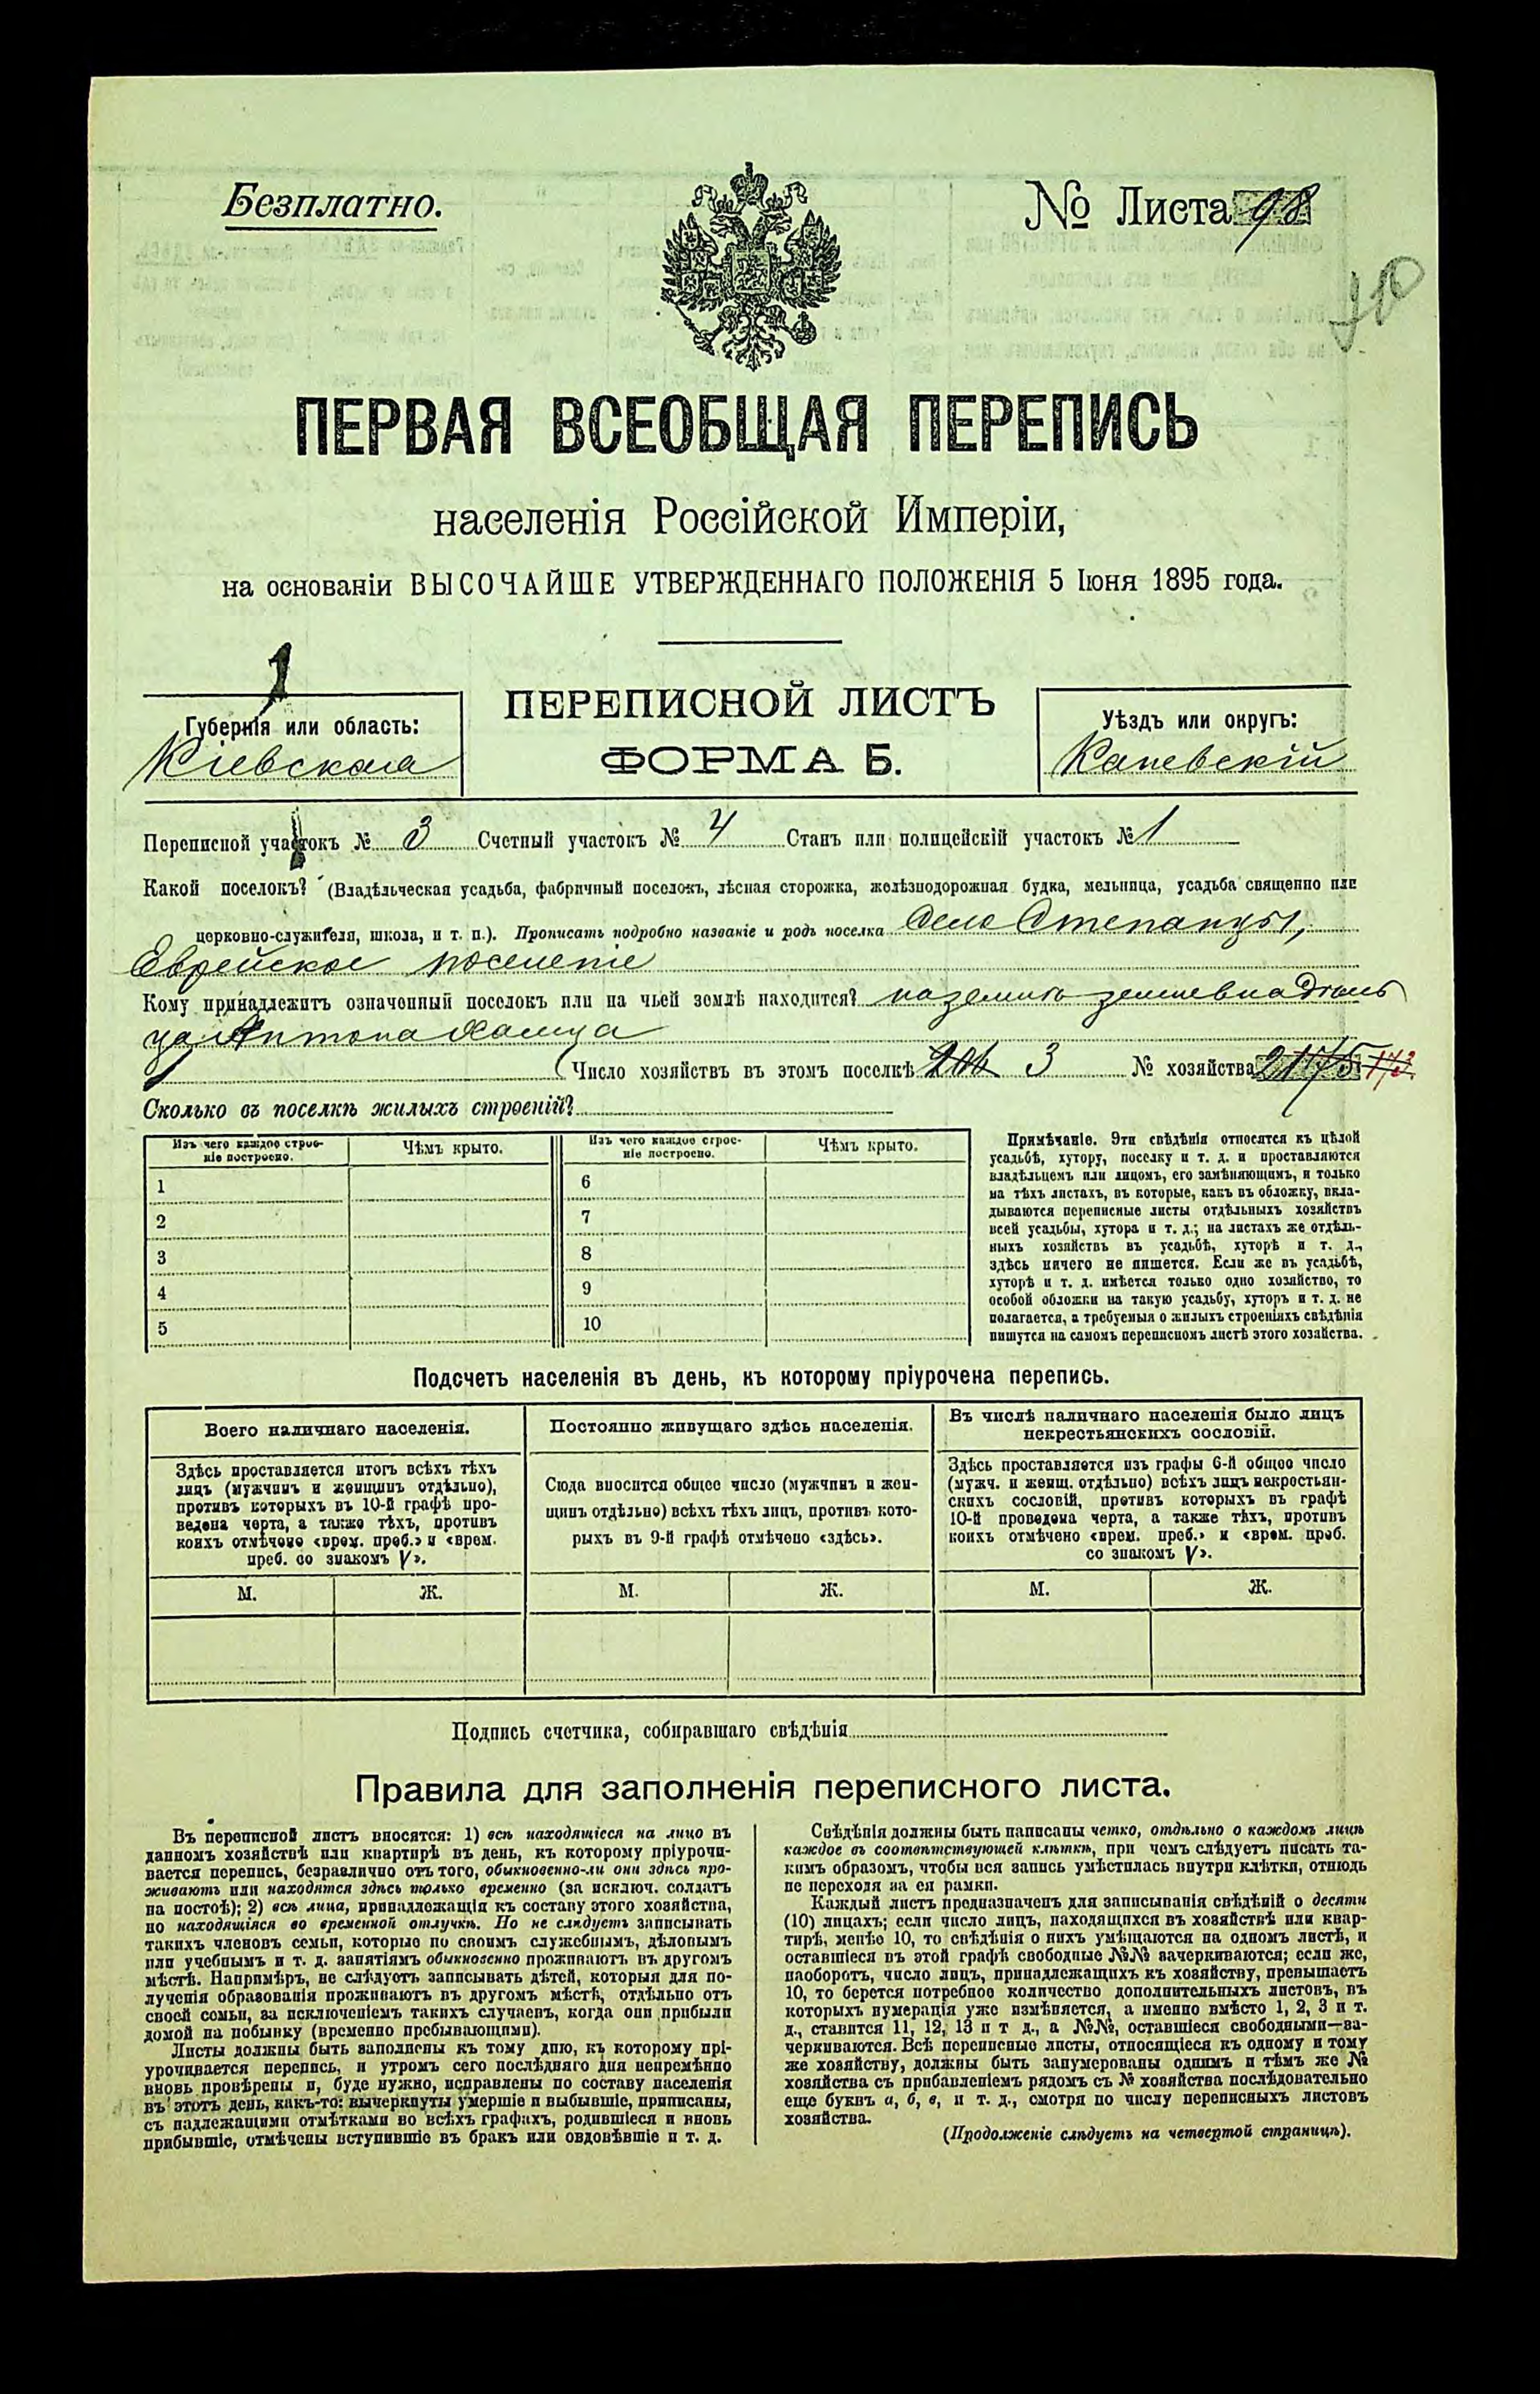 Безплатно.
№ Листа 98
ПЕРВАЯ ВСЕОБЩАЯ ПЕРЕПИСЬ
населенія Россійской Имперіи,
на основаніи ВЫСОЧАЙШЕ УТВЕРЖДЕННАГО ПОЛОЖЕНІЯ 5 Іюня 1895 года.
1
Губернія или область:
Кіевская
ПЕРЕПИСНОЙ ЛИСТЪ
ФОРМА Б.
Уѣздъ или округъ:
Каневскій
Переписной участокъ № 3 Счетный участокъ № 4 Станъ или полицейскій участокъ № 1
Какой поселокъ? (Владѣльческая усадьба, фабричный поселокъ, лѣсная сторожка, желѣзнодорожная будка, мельница, усадьба священно или
церковно-служителя, школа, и т. п.). Прописать подробно названіе и родъ поселка Село Степанцы,
Еврейское поселеніе
Кому принадлежитъ означенный поселокъ или на чьей землѣ находится? на земли землевладѣль
ца Антона
Число хозяйствъ въ этомъ поселкѣ 3 № хозяйства 2175 173
Сколько въ поселкѣ жилыхъ строеній?
Изъ чего каждое строе-
ніе построено.
Чѣмъ крыто.
Изъ чего каждое строе-
ніе построено.
Чѣмъ крыто.
1
2
3
4
5
6
7
8
9
10
Примѣчаніе. Эти свѣдѣнія относятся къ цѣлой
усадьбѣ, хутору, поселку и т. д. и проставляются
владѣльцемъ или лицомъ, его замѣняющимъ, и только
на тѣхъ листахъ, въ которые, какъ въ обложку, вкла-
дываются переписные листы отдѣльныхъ хозяйствъ
всей усадьбы, хутора и т. д.; на листахъ же отдѣль-
ныхъ хозяйствъ въ усадьбѣ, хуторѣ и т. д.,
здѣсь ничего не пишется. Если же въ усадьбѣ,
хуторѣ и т. д. имѣется только одно хозяйство, то
особой обложки на такую усадьбу, хуторъ и т. д. не
полагается, а требуемыя о жилыхъ строеніяхъ свѣдѣнія
пишутся на самомъ переписномъ листѣ этого хозяйства.
Подсчетъ населенія въ день, къ которому пріурочена перепись.
Всего наличнаго населенія.
Здѣсь проставляется итогъ всѣхъ тѣхъ
лицъ (мужчинъ и женщинъ отдѣльно),
противъ которыхъ въ 10-й графѣ про-
ведена черта, а также тѣхъ, противъ
коихъ отмѣчено «врем. преб.» и «врем.
преб. со знакомъ V».
М. Ж.
Постоянно живущаго здѣсь населенія.
Сюда вносится общее число (мужчинъ и жен-
щинъ отдѣльно) всѣхъ тѣхъ лицъ, противъ кото-
рыхъ въ 9-й графѣ отмѣчено «здѣсь».
М. Ж.
Въ числѣ наличнаго населенія было лицъ
некрестьянскихъ сословій.
Здѣсь проставляется изъ графы 6-й общее число
(мужч. и женщ. отдѣльно) всѣхъ лицъ некрестьян-
скихъ сословій, противъ которыхъ въ графѣ
10-й проведена черта, а также тѣхъ, противъ
коихъ отмѣчено «врем. преб.» и «врем. преб.
со знакомъ V».
М. Ж.
Подпись счетчика, собиравшаго свѣдѣнія
Правила для заполненія переписного листа.
Въ переписной листъ вносятся: 1) всѣ находящіеся на лицо въ
данномъ хозяйствѣ или квартирѣ въ день, къ которому пріурочи-
вается перепись, безразлично отъ того, обыкновенно-ли они здѣсь про-
живаютъ или находятся здѣсь только временно (за исключ. солдатъ
на постоѣ); 2) всѣ лица, принадлежащія къ составу этого хозяйства,
но находящіяся во временной отлучкѣ. Но не слѣдуетъ записывать
такихъ членовъ семьи, которые по своимъ служебнымъ, дѣловымъ
или учебнымъ и т. д. занятіямъ обыкновенно проживаютъ въ другомъ
мѣстѣ. Напримѣръ, не слѣдуетъ записывать дѣтей, которыя для по-
лученія образованія проживаютъ въ другомъ мѣстѣ, отдѣльно отъ
своей семьи, за исключеніемъ такихъ случаевъ, когда они прибыли
домой на побывку (временно пребывающими).
Листы должны быть заполнены къ тому дню, къ которому прі-
урочивается перепись, и утромъ сего послѣдняго дня непремѣнно
вновь провѣрены и, буде нужно, исправлены по составу населенія
въ этотъ день, какъ-то: вычеркнуты умершіе и выбывшіе, приписаны,
съ надлежащими отмѣтками во всѣхъ графахъ, родившіеся и вновь
прибывшіе, отмѣчены вступившіе въ бракъ или овдовѣвшіе и т. д.
Свѣдѣнія должны быть написаны четко, отдѣльно о каждомъ лицѣ
каждое въ соотвѣтствующей клѣткѣ, при чемъ слѣдуетъ писать та-
кимъ образомъ, чтобы вся запись умѣстилась внутри клѣтки, отнюдь
не переходя на ея рамки.
Каждый листъ предназначенъ для записыванія свѣдѣній о десяти
(10) лицахъ; если число лицъ, находящихся въ хозяйствѣ или квар-
тирѣ, менѣе 10, то свѣдѣнія о нихъ умѣщаются на одномъ листѣ, и
оставшіеся въ этой графѣ свободные №№ зачеркиваются; если же,
наоборотъ, число лицъ, принадлежащихъ къ хозяйству, превышаетъ
10, то берется потребное количество дополнительныхъ листовъ, въ
которыхъ нумерація уже измѣняется, а именно вмѣсто 1, 2, 3 и т.
д., ставится 11, 12, 13 и т д., а №№, оставшіеся свободными—за-
черкиваются. Всѣ переписные листы, относящіеся къ одному и тому
же хозяйству, должны быть занумерованы однимъ и тѣмъ же №
хозяйства съ прибавленіемъ рядомъ съ № хозяйства послѣдовательно
еще буквъ а, б, в, и т. д., смотря по числу переписныхъ листовъ
хозяйства.
(Продолженіе слѣдуетъ на четвертой страницѣ).